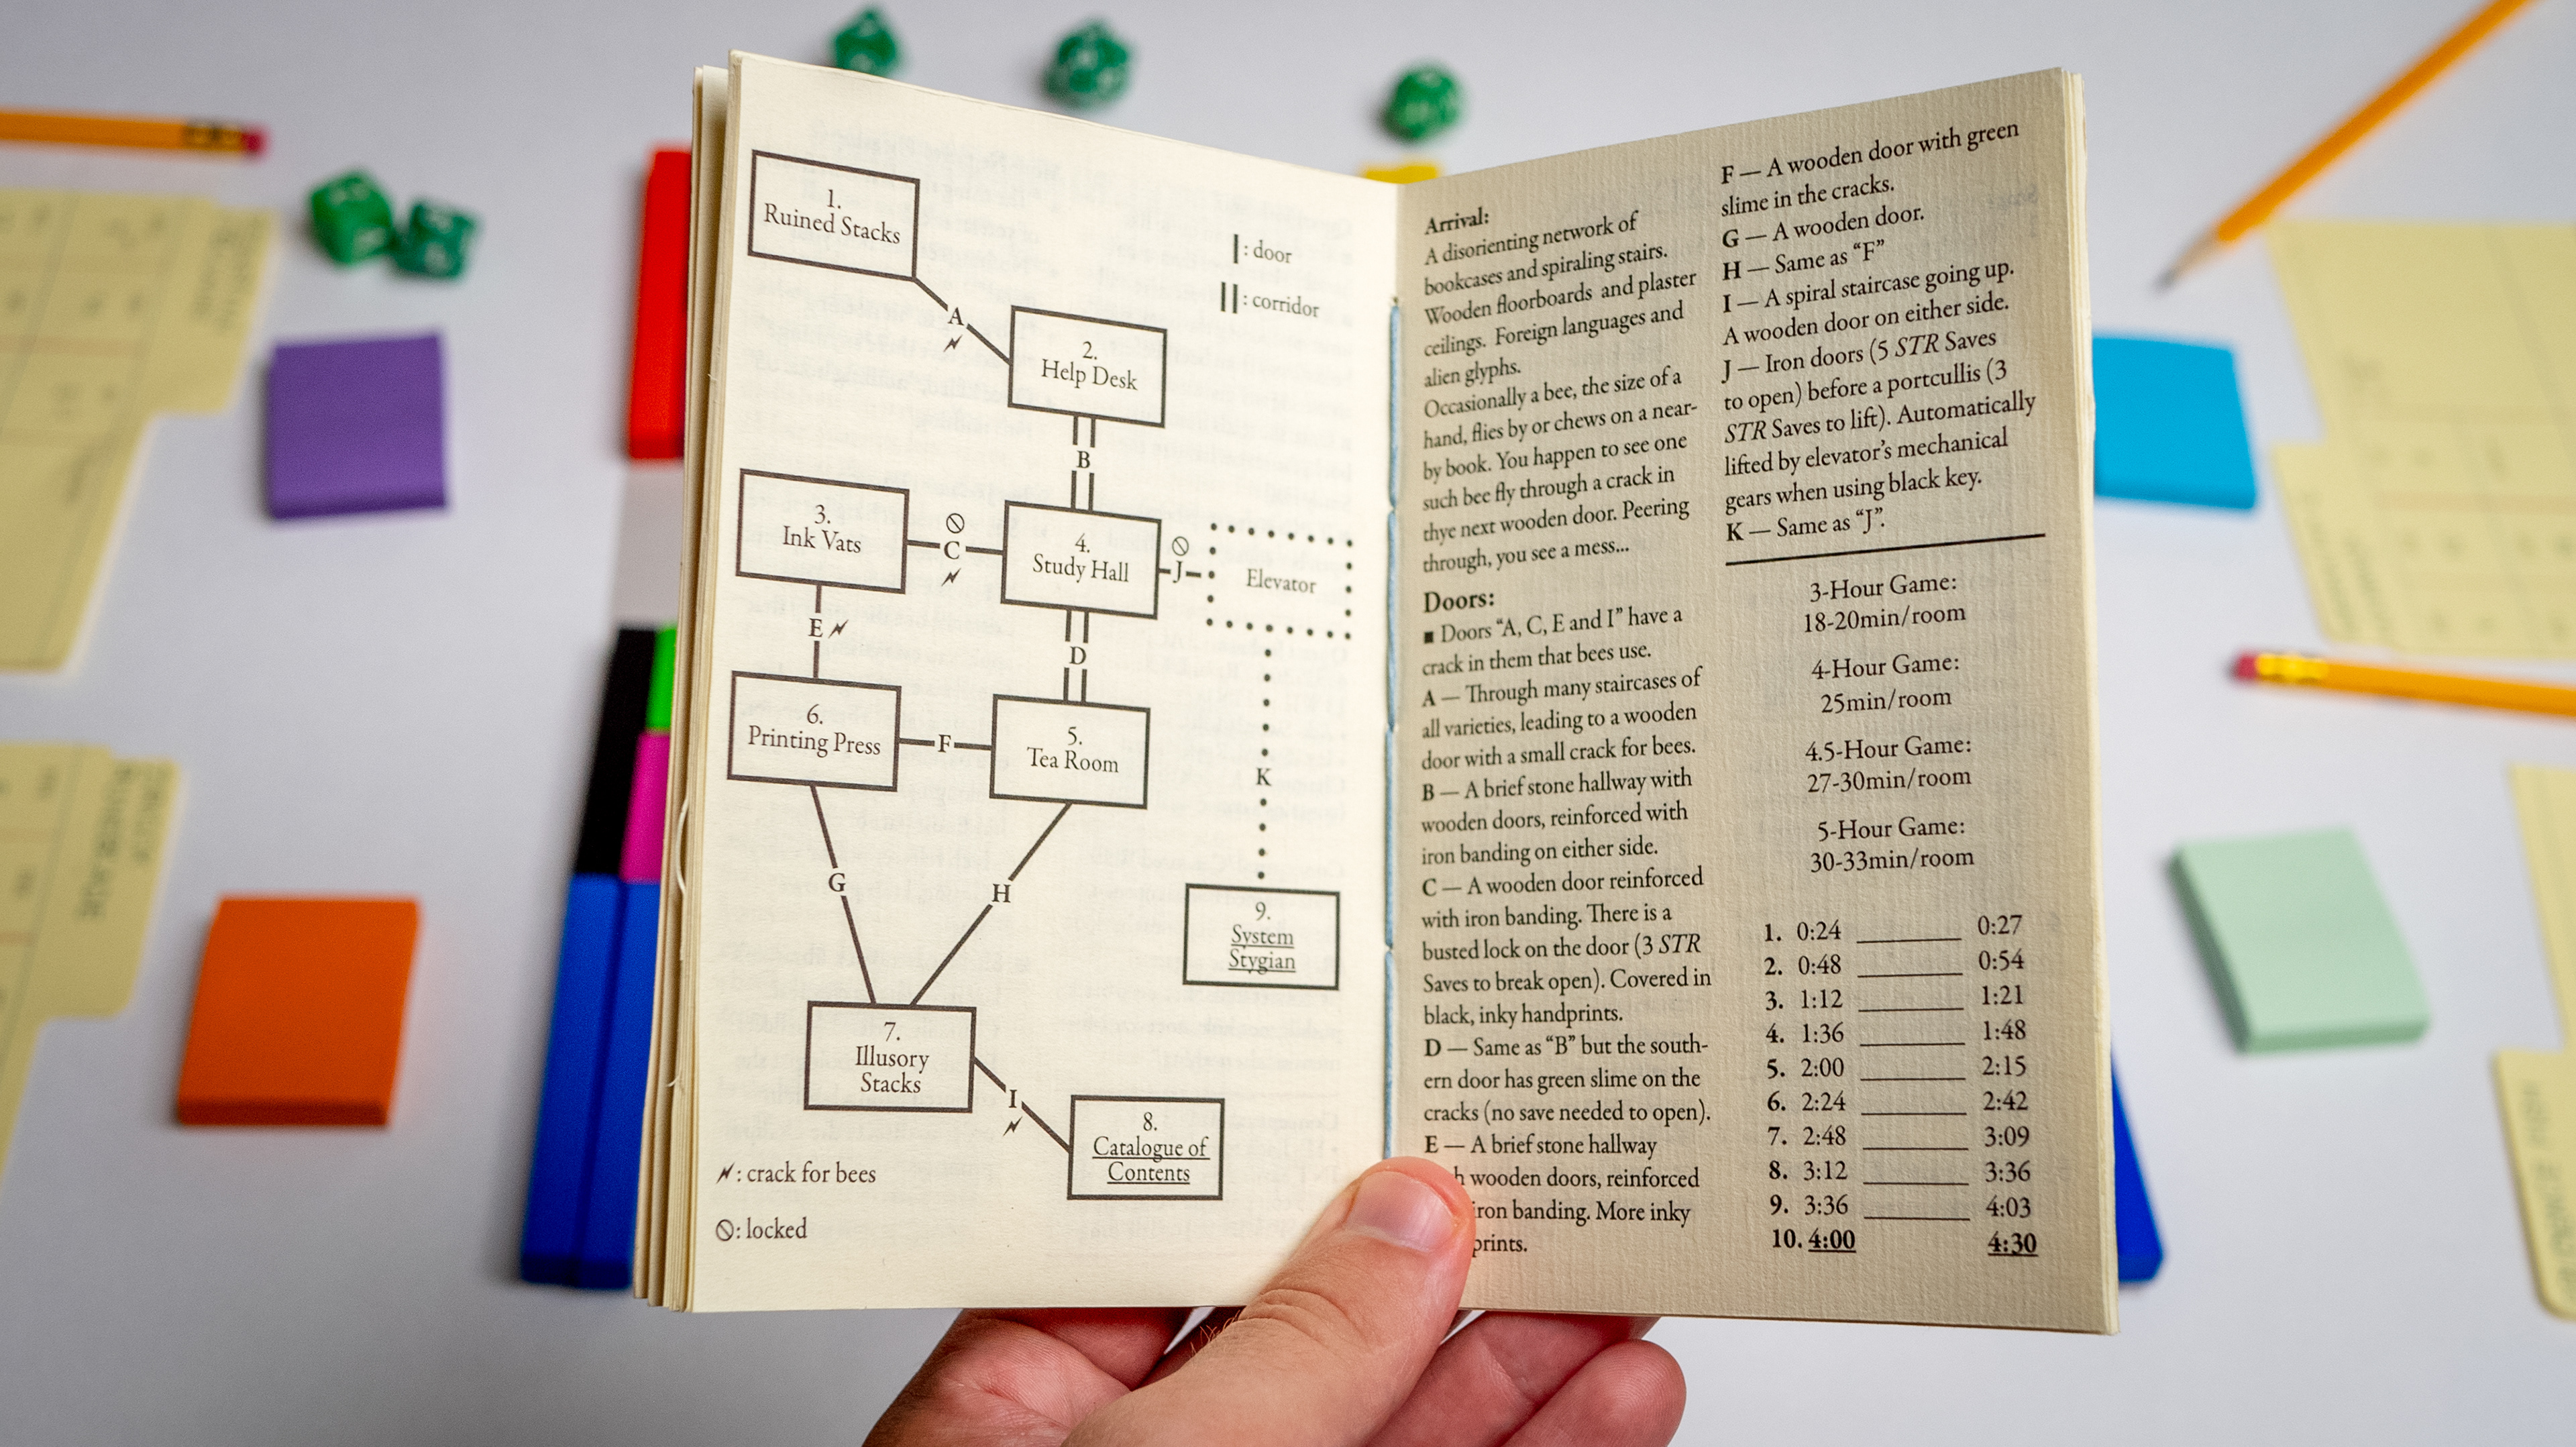 1.
Ruined Stacks
: door
: corridor
A
2.
Help Desk
B
3.
Ink Vats
C
4.
Study Hall
J
Elevator
E
D
6.
Printing Press
F
5.
Tea Room
K
G
H
9.
System
Stygian
7.
Illusory
Stacks
I
8.
Catalogue of
Contents
: crack for bees
: locked
Arrival:
A disorienting network of
bookcases and spiraling stairs.
Wooden floorboards and plaster
ceilings. Foreign languages and
alien glyphs.
Occasionally a bee, the size of a
hand, flies by or chews on a near-
by book. You happen to see one
such bee fly through a crack in
thye next wooden door. Peering
through, you see a mess...
Doors:
■ Doors “A, C, E and I” have a
crack in them that bees use.
A — Through many staircases of
all varieties, leading to a wooden
door with a small crack for bees.
B — A brief stone hallway with
wooden doors, reinforced with
iron banding on either side.
C — A wooden door reinforced
with iron banding. There is a
busted lock on the door (3 STR
Saves to break open). Covered in
black, inky handprints.
D — Same as “B” but the south-
ern door has green slime on the
cracks (no save needed to open).
E — A brief stone hallway
wooden doors, reinforced
iron banding. More inky
prints.
F — A wooden door with green
slime in the cracks.
G — A wooden door.
H — Same as “F”
I — A spiral staircase going up.
A wooden door on either side.
J — Iron doors (5 STR Saves
to open) before a portcullis (3
STR Saves to lift). Automatically
lifted by elevator’s mechanical
gears when using black key.
K — Same as “J”.
3-Hour Game:
18-20min/room
4-Hour Game:
25min/room
4.5-Hour Game:
27-30min/room
5-Hour Game:
30-33min/room
1. 0:24 ________ 0:27
2. 0:48 ________ 0:54
3. 1:12 ________ 1:21
4. 1:36 ________ 1:48
5. 2:00 ________ 2:15
6. 2:24 ________ 2:42
7. 2:48 ________ 3:09
8. 3:12 ________ 3:36
9. 3:36 ________ 4:03
10. 4:00 4:30